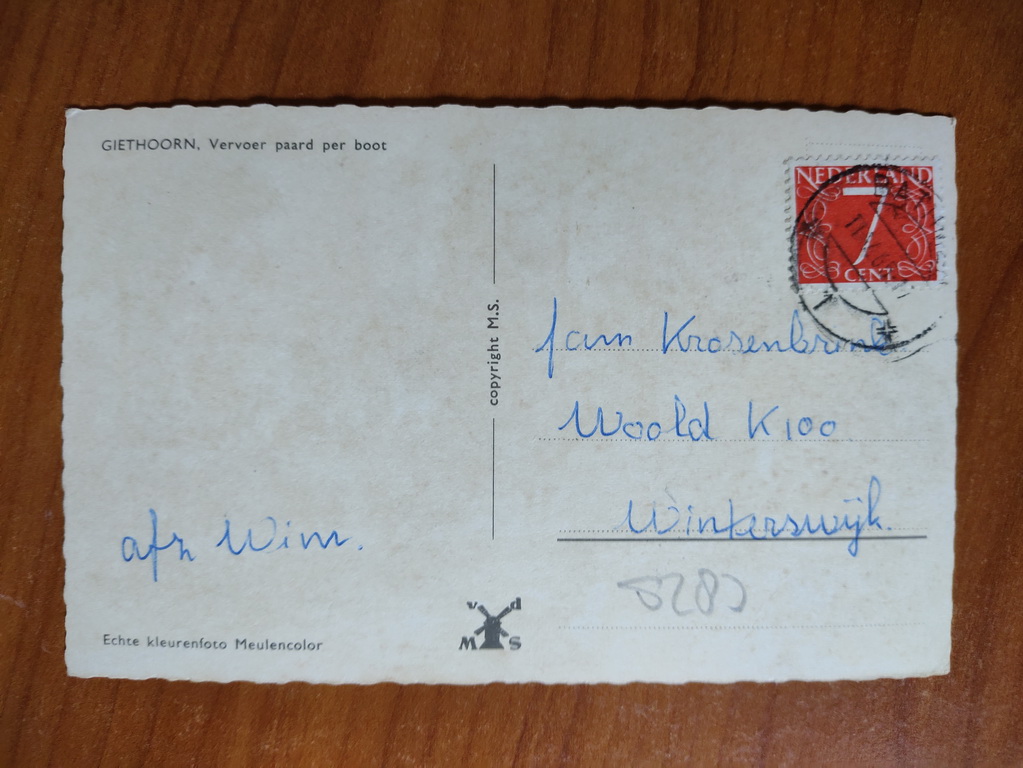 GIETHOORN, Vervoer paard per boot
copyright M.S.
NEDERLAND
7
CENT
fam Krosenbrink
Woold K100
Winterswijk.
afz Wim.
v d
M S
Echte kleurenfoto Meulencolor